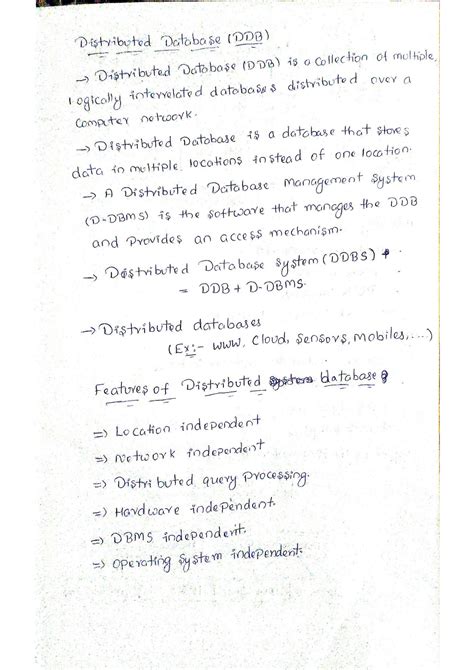 Distributed Database (DDB)
→ Distributed Database (DDB) is a collection of multiple,
logically interrelated databases distributed over a
computer network.
→ Distributed Database is a database that stores
data in multiple locations instead of one location.
→ A Distributed Database Management System
(D-DBMS) is the software that manages the DDB
and provides an access mechanism.
→ Distributed Database System (DDBS)
= DDB + D-DBMS.
→ Distributed databases
(Ex:- WWW, Cloud, Sensors, Mobiles,...)
Features of Distributed database
=> Location independent
=> Network independent
=> Distributed query Processing.
=> Hardware independent.
=> DBMS independent.
=> Operating System independent.